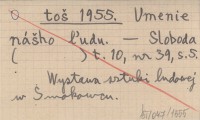 toš 1955. Umenie
nášho ľudu. — Sloboda
( ) t. 10, nr 39, s. 5.
Wystawa sztuki ludowej
w Smokowcu.